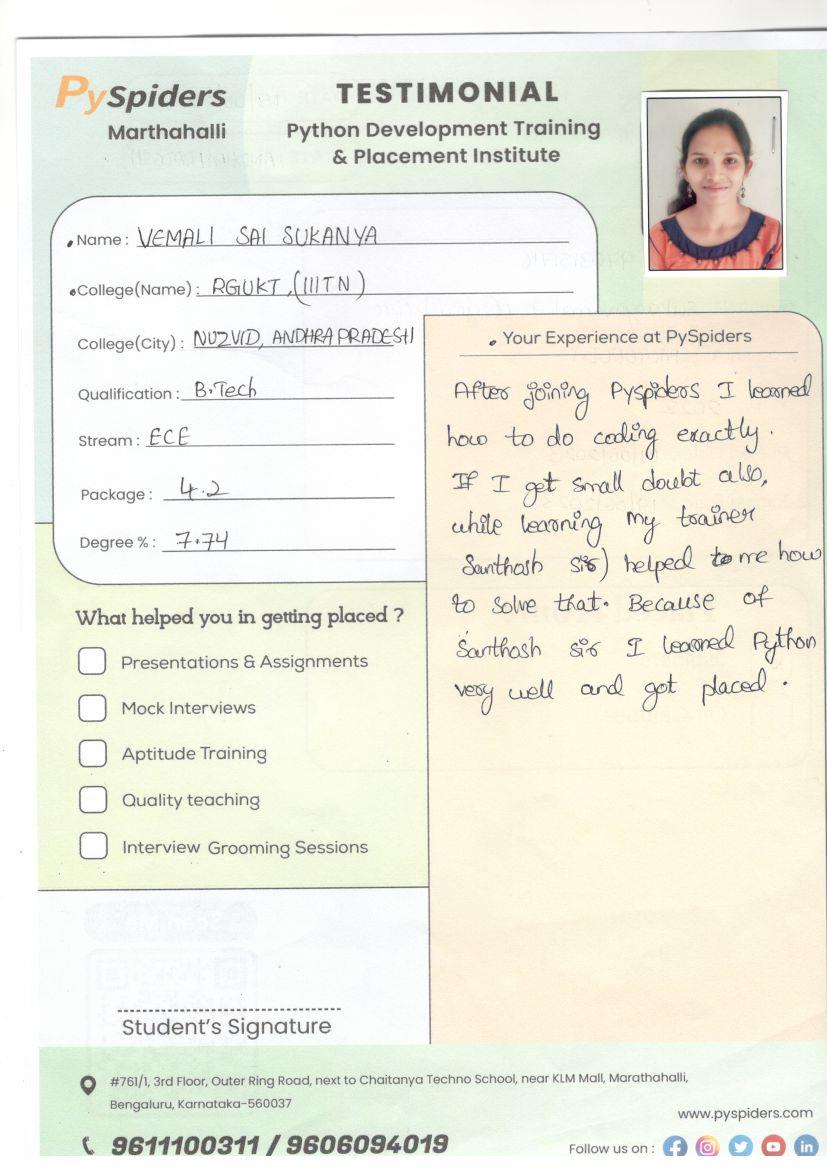 PySpiders
Marthahalli
TESTIMONIAL
Python Development Training
& Placement Institute
Name : VEMALI SAI SUKANYA
College(Name) : RGUKT, (IIITN)
College(City) : NUZVID, ANDHRA PRADESH
Qualification : B.Tech
Stream : ECE
Package : 4.2
Degree % : 7.74
What helped you in getting placed ?
Presentations & Assignments
Mock Interviews
Aptitude Training
Quality teaching
Interview Grooming Sessions
Student's Signature
Your Experience at PySpiders
After joining Pyspiders I learned
how to do coding exactly.
If I get small doubt also,
while learning my trainer
Santhosh sir) helped to me how
to solve that. Because of
Santhosh sir I learned Python
very well and got placed.
#761/1, 3rd Floor, Outer Ring Road, next to Chaitanya Techno School, near KLM Mall, Marathahalli,
Bengaluru, Karnataka-560037
www.pyspiders.com
9611100311 / 9606094019
Follow us on :